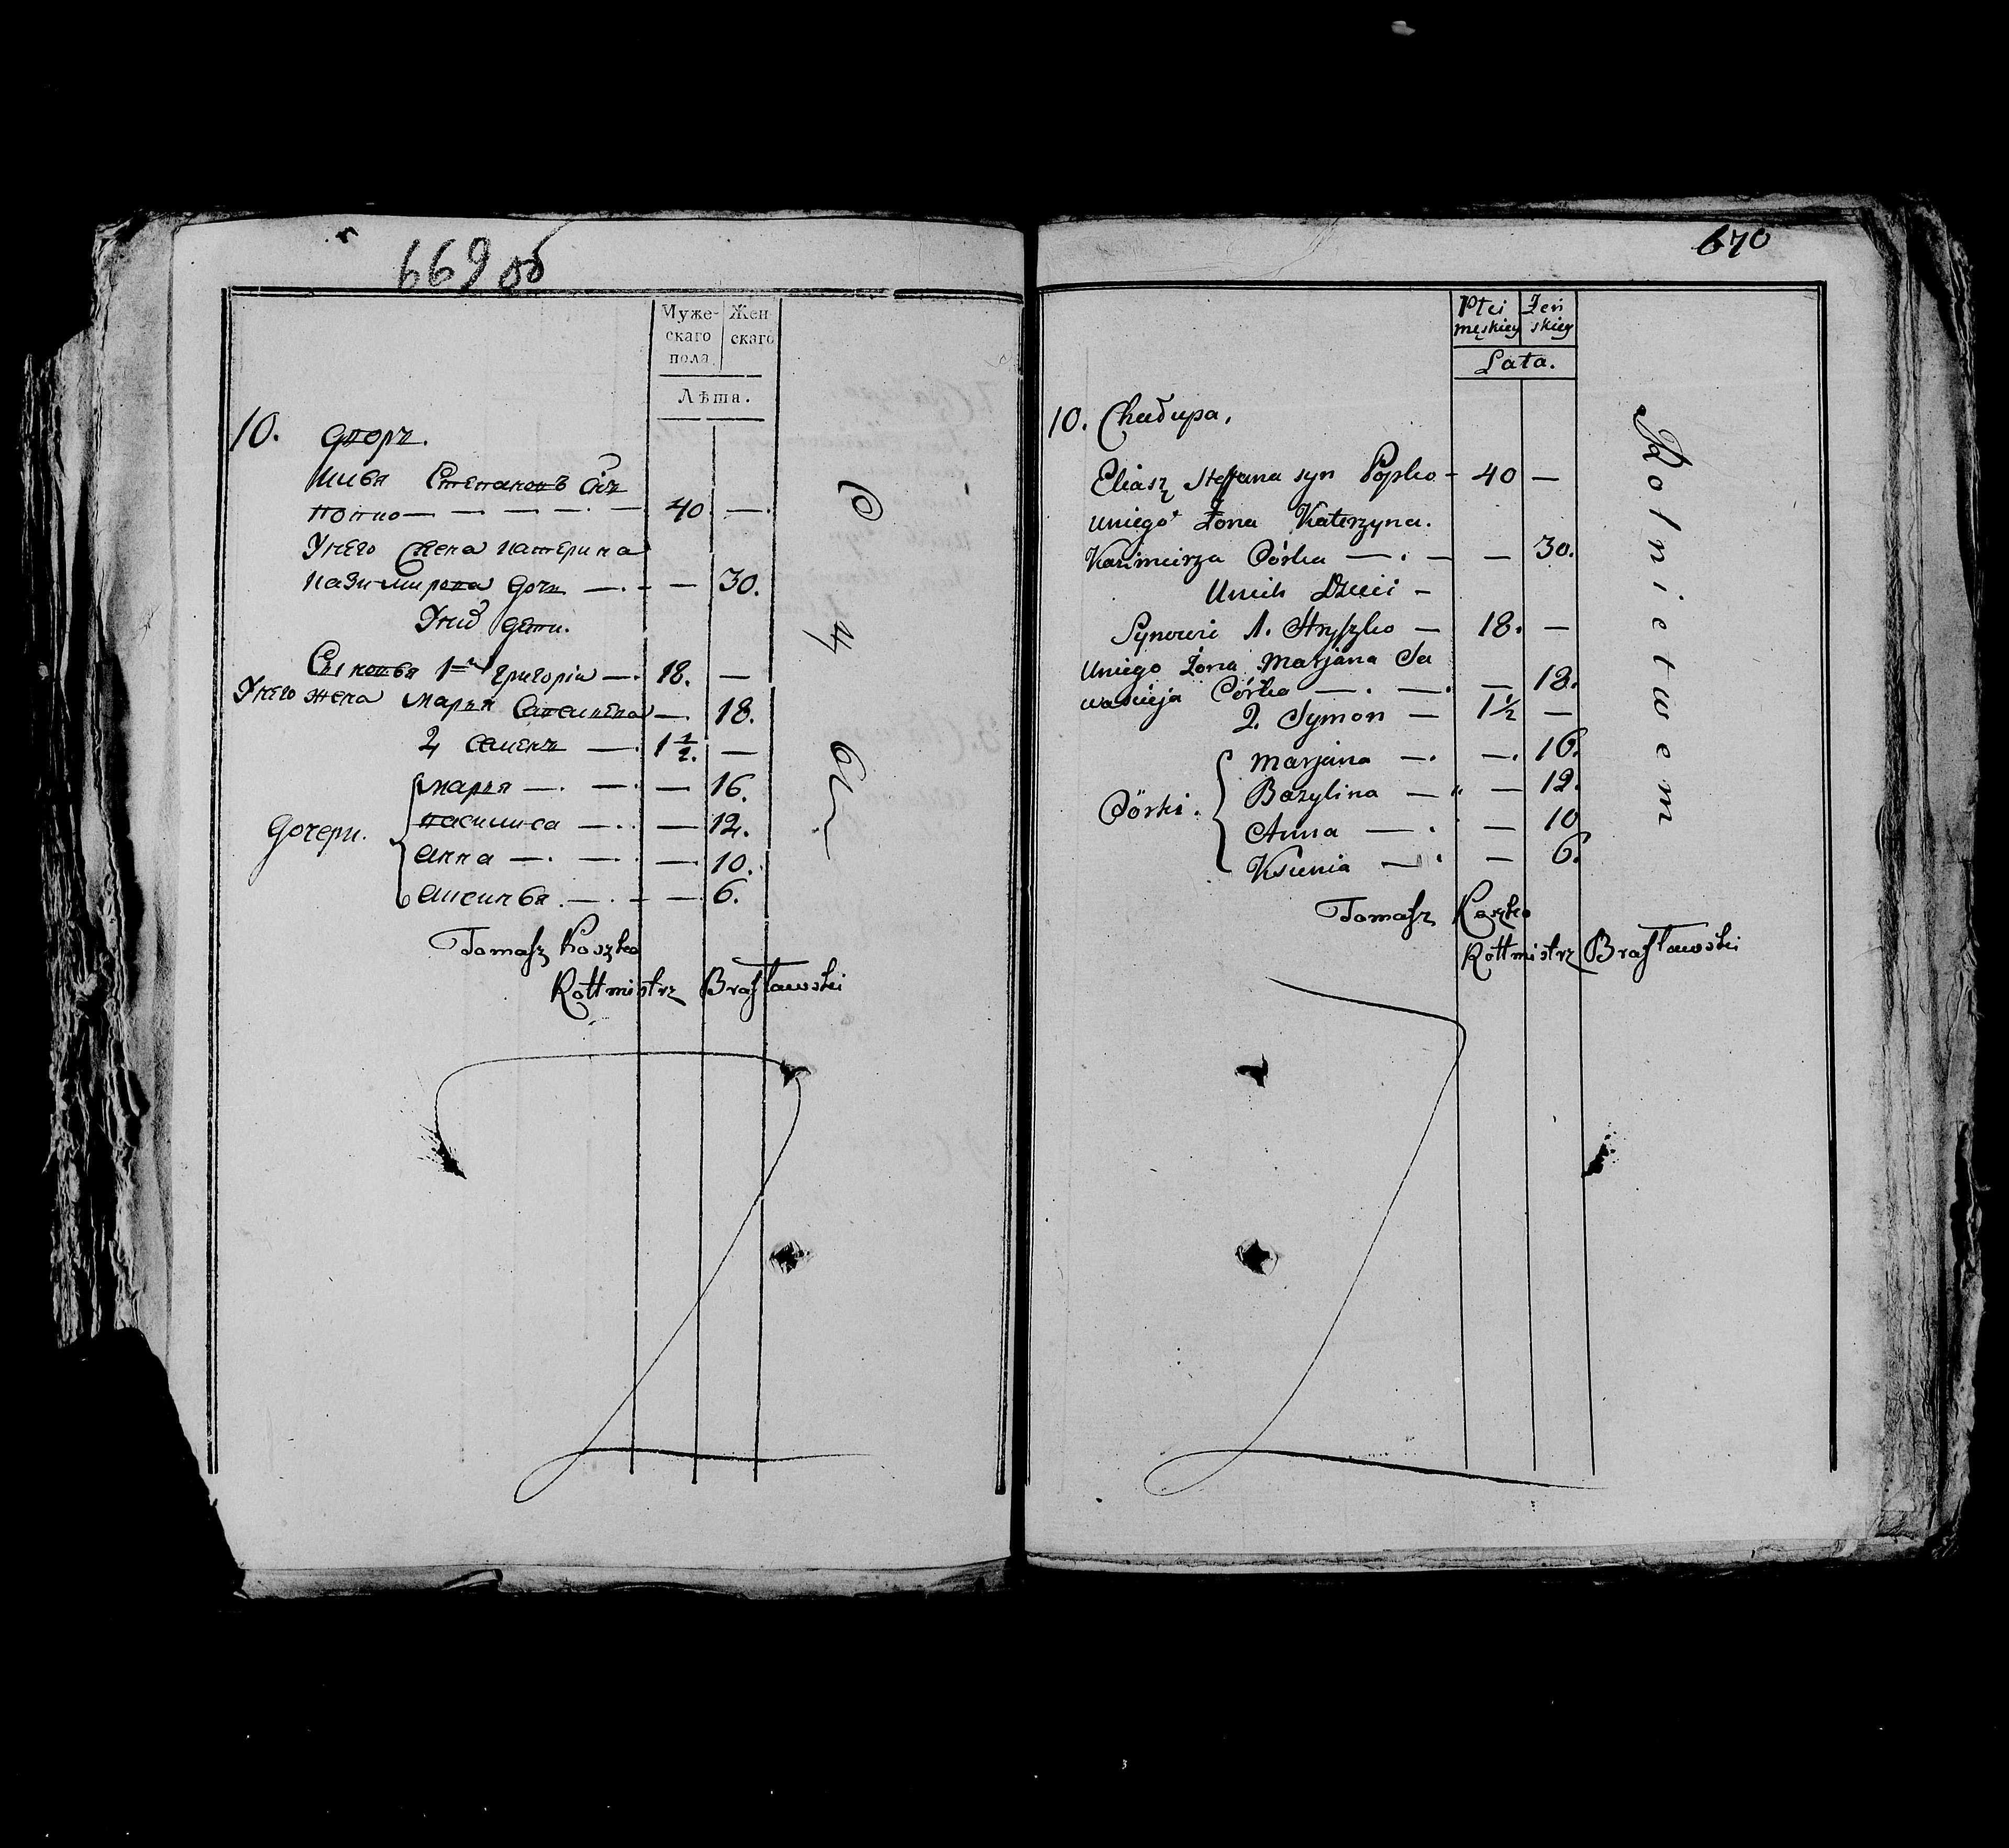 669 об
Муже-
скаго
пола.
Жен
скаго
Лѣта.
10. дворъ.
Илья Степановъ Снъ
попко 40 —
Унего Жена катерина
казимирова дочь — 30.
Уних дети.
Сыновья 1й григорій 18. —
Унего жена марья — 18.
2 семенъ 1 1/2. —
дочери.
марья — 16.
василиса — 12.
анна — 10.
аксинья — 6.
Tomasz Koszko
Rottmistrz Brasławski
670
Płci
męskiey
Żeń
skiey
Lata.
10. Chałupa.
Eliasz Steffana syn Popko 40 —
uniego Żona Katerzyna.
Kazimierza Córka — 30.
Unich Dzieci
Synowie 1. Hryszko 18. —
Uniego Żona Marjana Sa
wasieja Córka — 18.
2. Symon 1 1/2 —
Córki.
Marjana — 16.
Bazylina — 12.
Anna — 10
Ksienia — 6.
Tomasz Koszko
Rottmistrz Brasławski
Rolnictwem